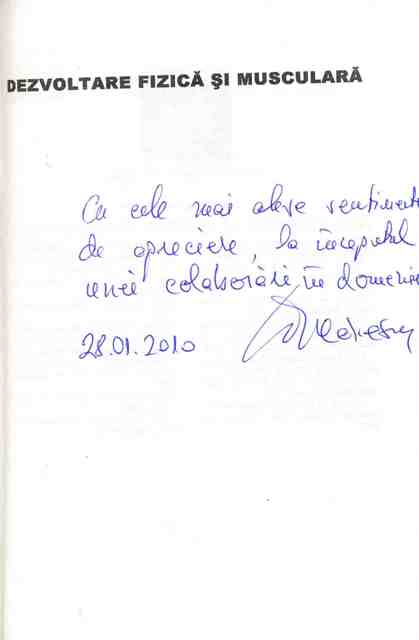 DEZVOLTARE FIZICĂ ŞI MUSCULARĂ
Cu cele mai alese sentimente
de apreciere, la începutul
unei colaborări în domeniu
28.01.2010